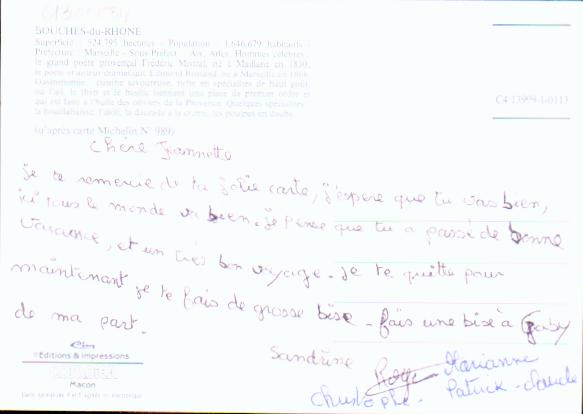 BOUCHES-du-RHONE
Superficie : 524.795 hectares - Population : 1.646.679 habitants -
Préfecture : Marseille - Sous-Préfect. : Aix, Arles. Hommes célèbres :
le grand poète provençal Frédéric Mistral, né à Maillane en 1830,
le poète et auteur dramatique Edmond Rostand, né à Marseille en 1868.
Gastronomie : cuisine savoureuse, riche en spécialités de haut goût
où l'ail, le thym et le basilic tiennent une place de premier ordre et
qui est faite à l'huile des oliviers de la Provence. Quelques spécialités :
la bouillabaisse, l'aïoli, la daurade à la crème, les poulpes en daube.
(d'après carte Michelin N° 989)
C4-13999-1-0113
Chère Jeannette
je te remercie de ta jolie carte, j'espère que tu vas bien,
ici tous le monde va bien. je pense que tu a passé de bonne
vacance, et un très bon voyage. je te quitte pour
maintenant je te fais de grosse bise - fais une bise à Gaby
de ma part.
Sandrine Roger Marianne
Christophe - Patrick - Claude
Editions & Impressions
COMBIER
Macon